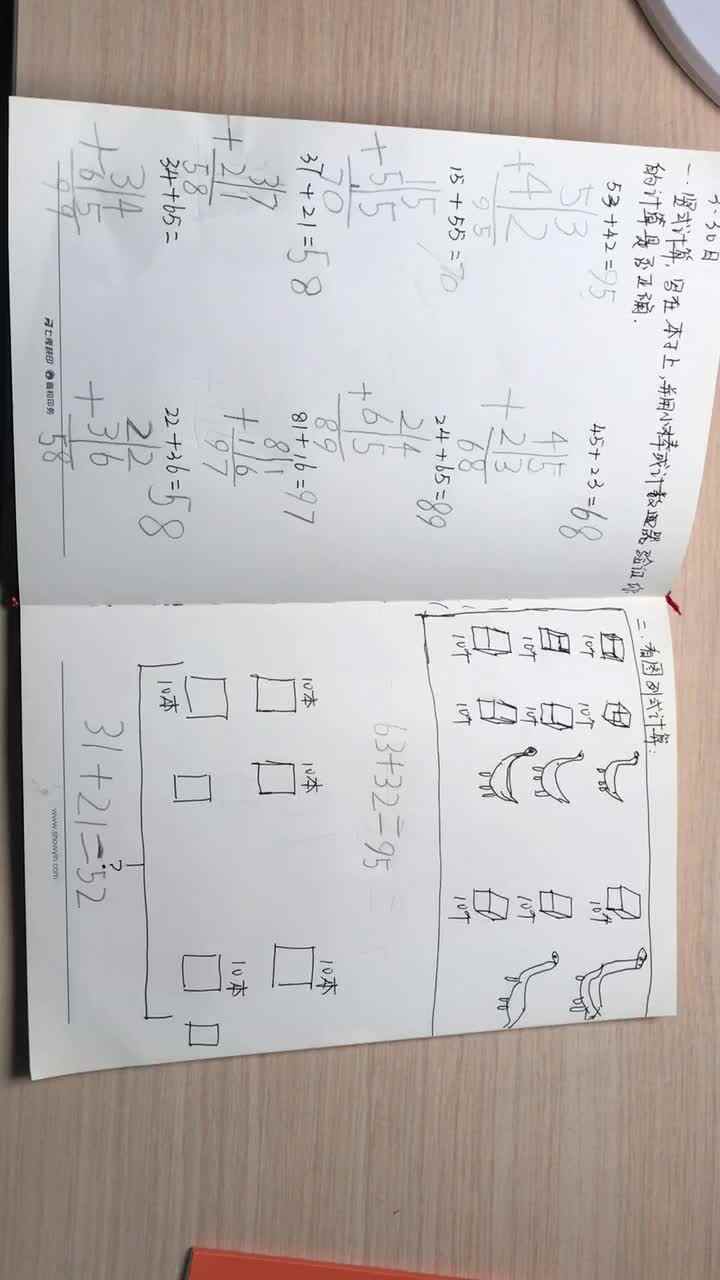 5.30日
一.竖式计算,写在本子上,并用小棒或计数器验证你
的计算是否正确.
53+42=95
53
+42
95
45+23=68
45
+23
68
15+55=70
15
+55
70
24+65=89
24
+65
89
37+21=58
37
+21
58
81+16=97
81
+16
97
34+65=
34
+65
99
22+36=58
22
+36
58
二.看图列式计算:
10个 10个 10个
10个 10个 10个
10个 10个 10个
63+32=95
10本 10本 10本
10本 10本
?
31+21=52
www.showyin.com